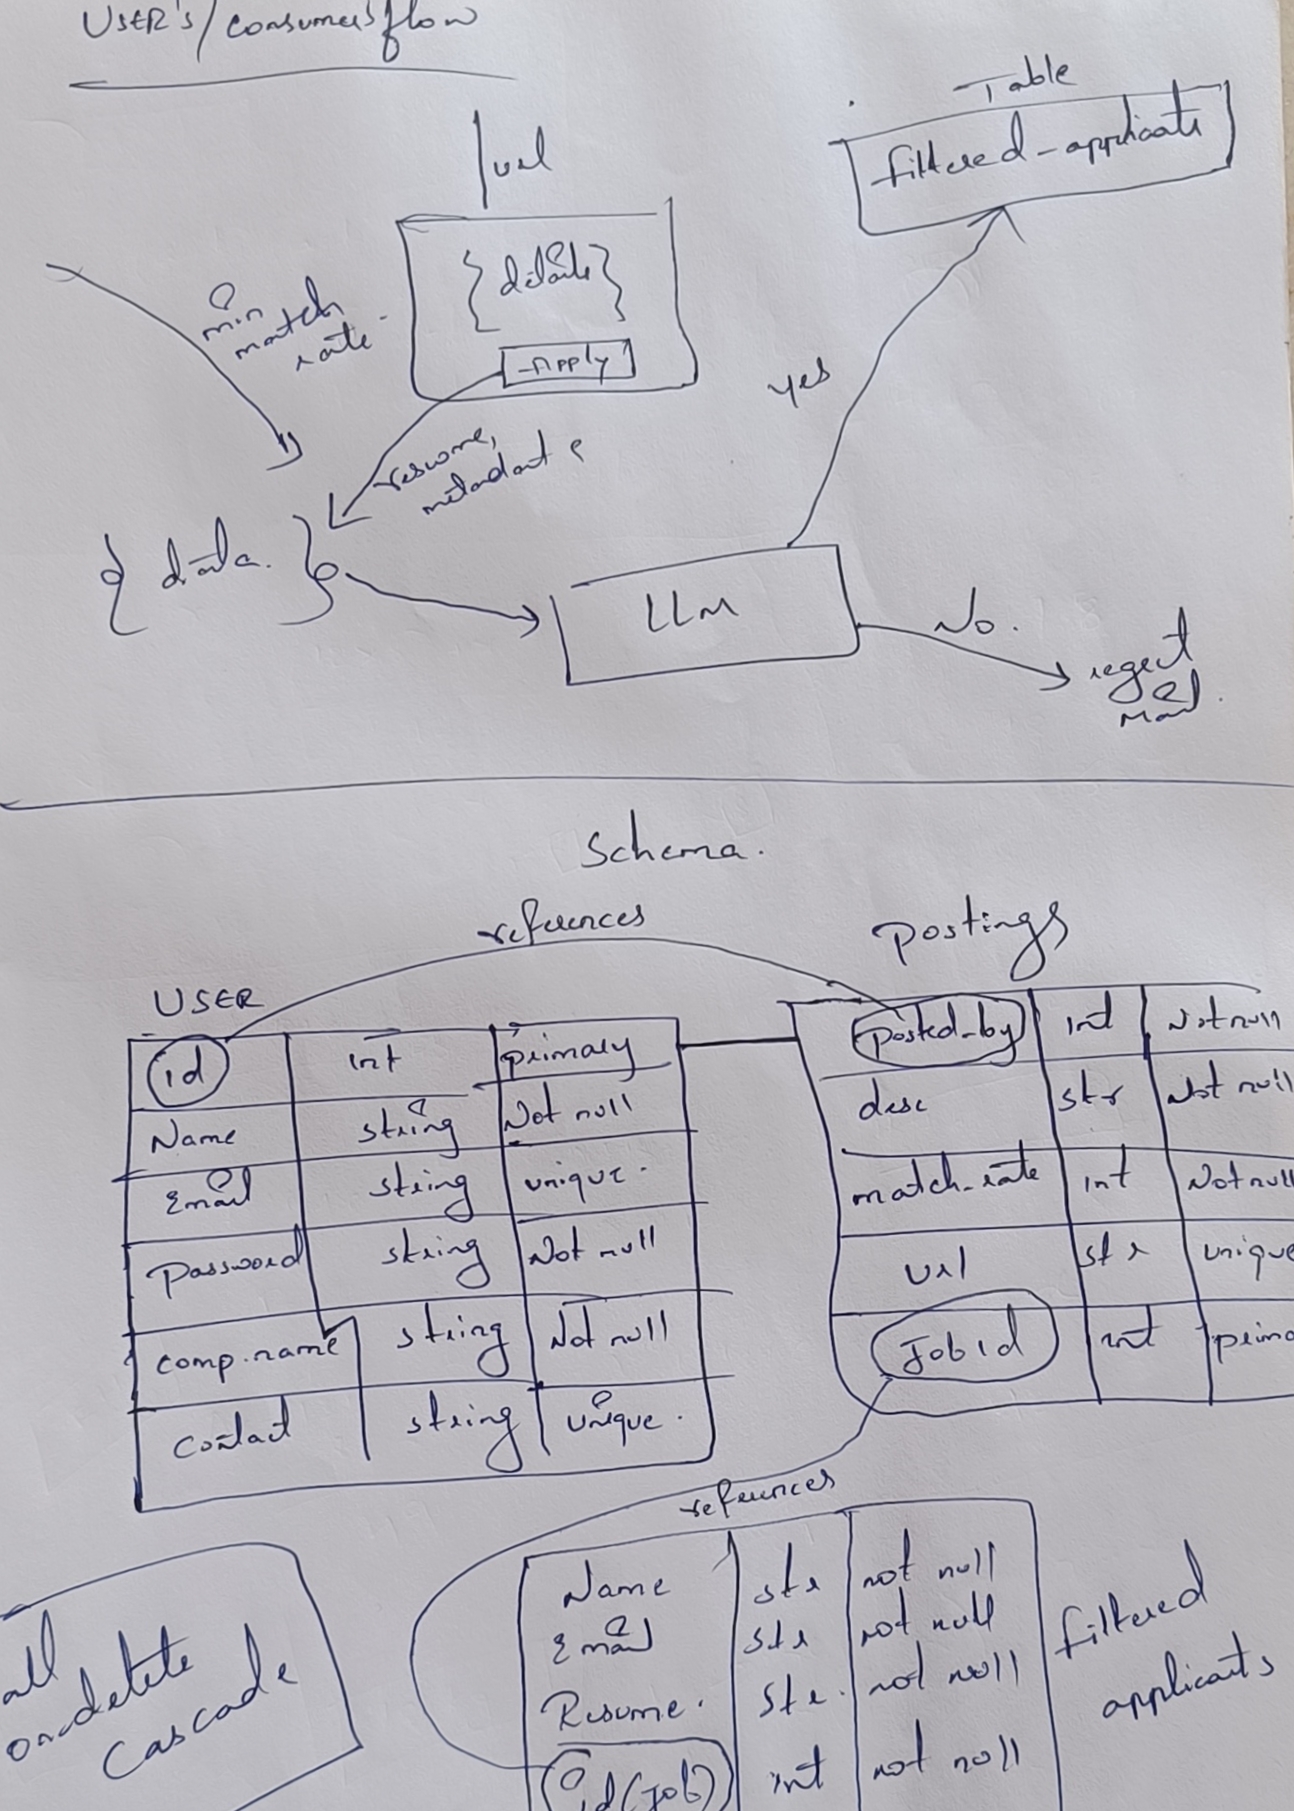 USER's/consumer's flow
Table
filtered-applicats
url
{details}
Apply
min
match
rate.
yes
resume,
metadata
{ data. }
LLM
No.
reject
mail.
Schema.
references
Postings
USER
id int primary
Name string Not null
Email string unique.
Password string Not null
comp.name string Not null
contact string unique.
posted-by int Not null
desc str Not null
match-rate int Not null
url str unique
Jobid int prima
references
Name str not null
Email str not null
Resume. str. not null
id(job) int not null
filtered
applicants
all
on-delete
cascade